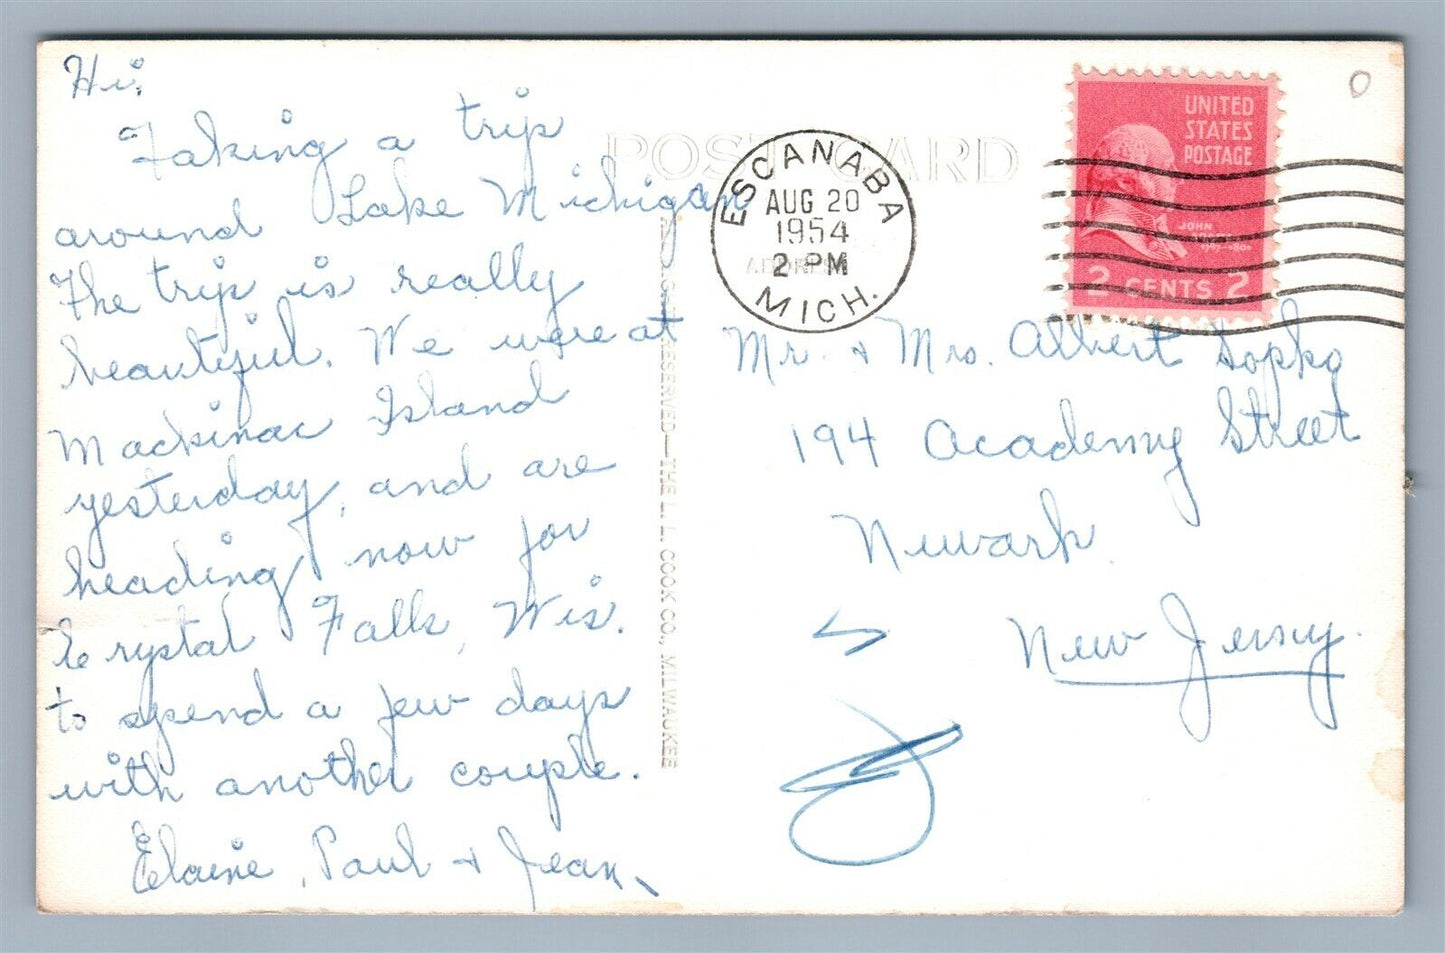 Hi,
Taking a trip
around Lake Michigan
The trip is really
beautiful. We were at
Mackinac Island
yesterday, and are
heading now for
Crystal Falls, Wis.
to spend a few days
with another couple.
Elaine, Paul + Jean
POST CARD
ESCANABA
AUG 20
1954
2 PM
MICH.
ADDRESS
UNITED
STATES
POSTAGE
JOHN
2 CENTS 2
RESERVED—THE L. L. COOK CO., MILWAUKEE
Mr. + Mrs. Albert Sopko
194 Academy Street
Newark
New Jersey.